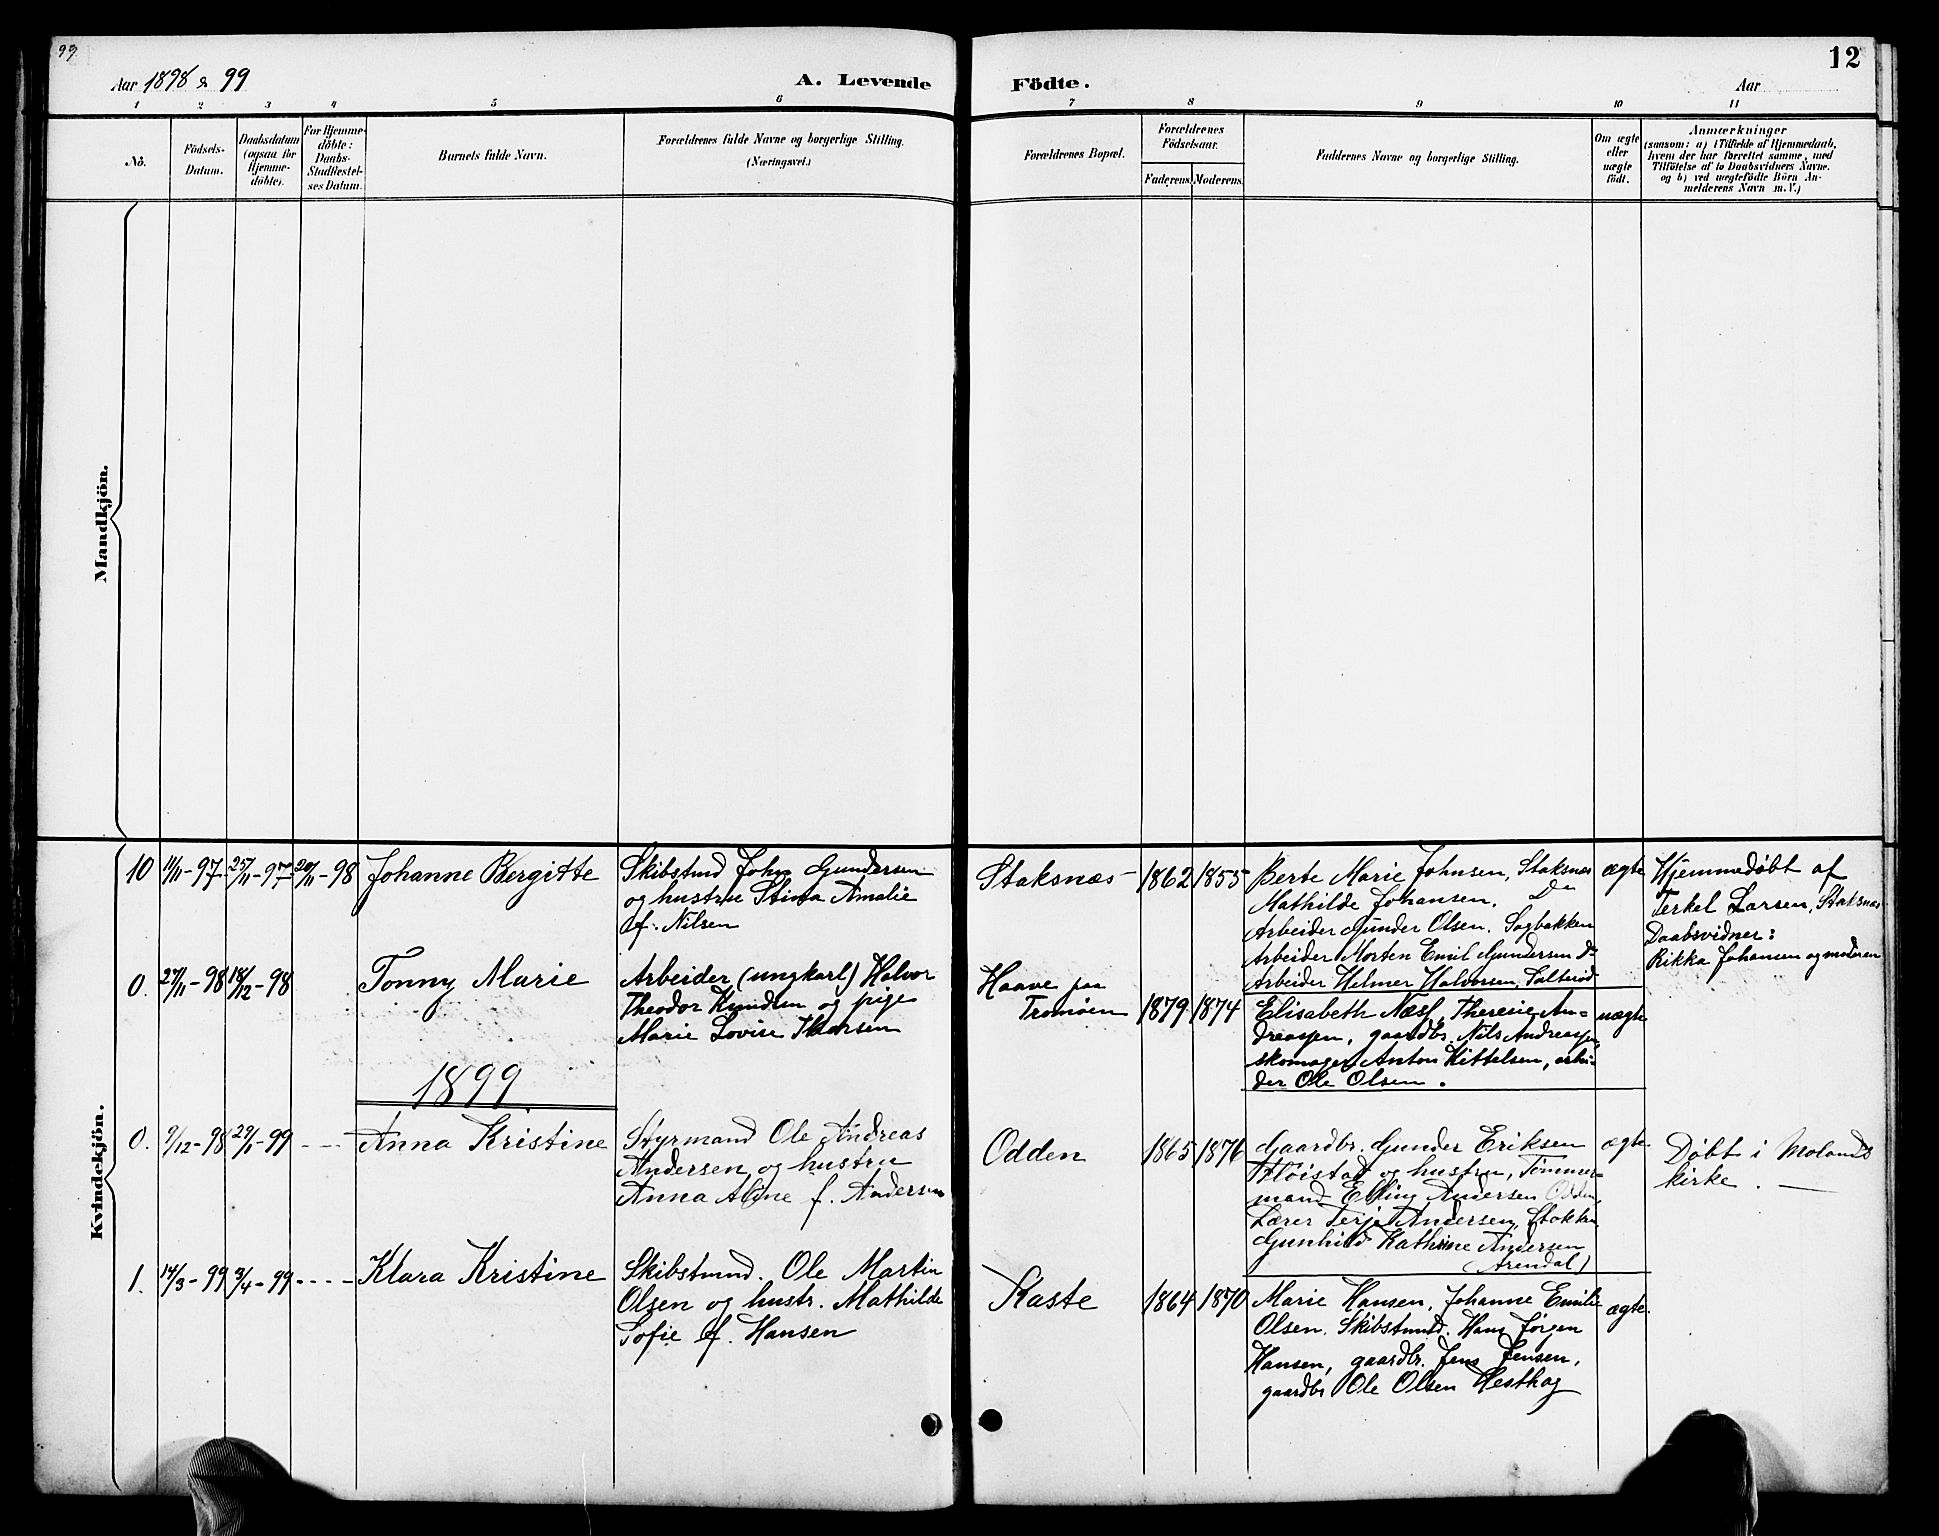 Aar 1898 & 99
A. Levende Födte.
Aar
12
1 2 3 4 5 6 7 8 9 10 11
No.
Födsels-Datum.
Daabsdatum (ogsaa for Hjemmedöbte).
For Hjemmedöbte: Daabs-Stadfestelses Datum.
Barnets fulde Navn.
Forældrenes fulde Navne og borgerlige Stilling.
(Næringsvei.)
Forældrenes Bopæl.
Forældrenes Födselsaar.
Faderens. Moderens.
Faddernes Navne og borgerlige Stilling.
Om ægte eller uægte födt.
Anmærkninger
(saasom: a) i Tilfælde af Hjemmedaab,
hvem der har forrettet samme, med
Tilföielse af to Daabsvidners Navne.
og b) ved uægtefödte Börn An-
melderens Navn m. V.)
Mandkjön.
Kvindekjön.
10 11/11-97 25/11-97 20/11-98 Johanne Bergitte
Skibstmd John Gundersen
og hustru Stina Amalie
af. Nilsen
Staksnæs 1862 1855
Berte Marie Johnsen, Staksnæs
Mathilde Johansen. Do
Arbeider Gunder Olsen. Sagbakken
Arbeider Morten Emil Gundersen Do
Arbeider Helmer Halvorsen, Salterød
ægte
Hjemmedøbt af
Terkel Larsen, Staksnæs
Daabsvidner:
Rikka Johansen og moderen
0. 27/11-98 18/12-98 Tonny Marie
Arbeider (ungkarl) Halvor
Theodor Knudsen og pige
Marie Lovise Thorsen
Haave paa
Tromøen 1879 1874
Elisabeth Næss, Theresie An-
dreassen, gaardbr. Nils Andreassen,
skomager Anton Kittelsen, arbei-
der Ole Olsen.
uægte
1899
0. 9/12-98 29/1-99 - - - Anna Kristine
Styrmand Ole Andreas
Andersen og hustru
Anna Aline f. Andersen
Odden 1865 1876
Gaardbr. Gunder Eriksen
Fløistad og hustru, Tømmer-
mand Elling Andersen Odden,
Lærer Terje Andersen, Stokken
Gunhild Kathrine Andersen
(Arendal)
ægte
Døbt i Molands
kirke. —
1. 14/3-99 3/4-99 - - - - Klara Kristine
Skibstmd. Ole Martin
Olsen og hustr. Mathilde
Sofie f. Hansen
Kaste 1864 1870
Marie Hansen, Johanne Emilie
Olsen. Skibstmd. Hans Jørgen
Hansen, gaardbr. Jens Jensen,
gaardbr Ole Olsen Hesthag
ægte.